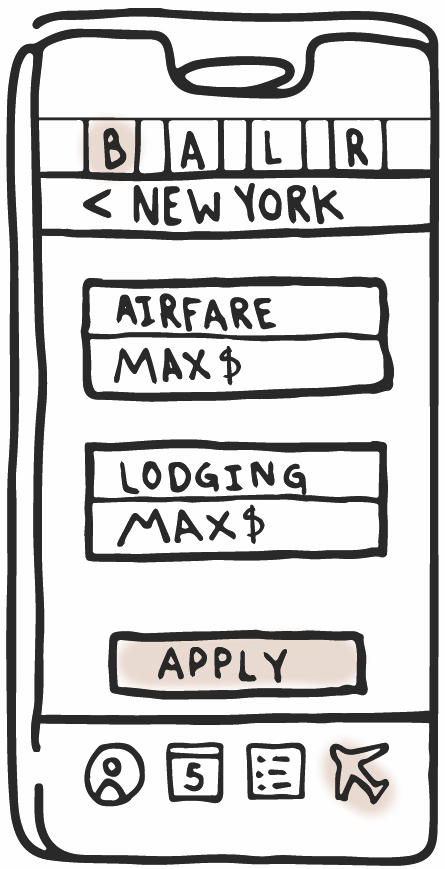 B A L R
< NEW YORK
AIRFARE
MAX $
LODGING
MAX $
APPLY
5